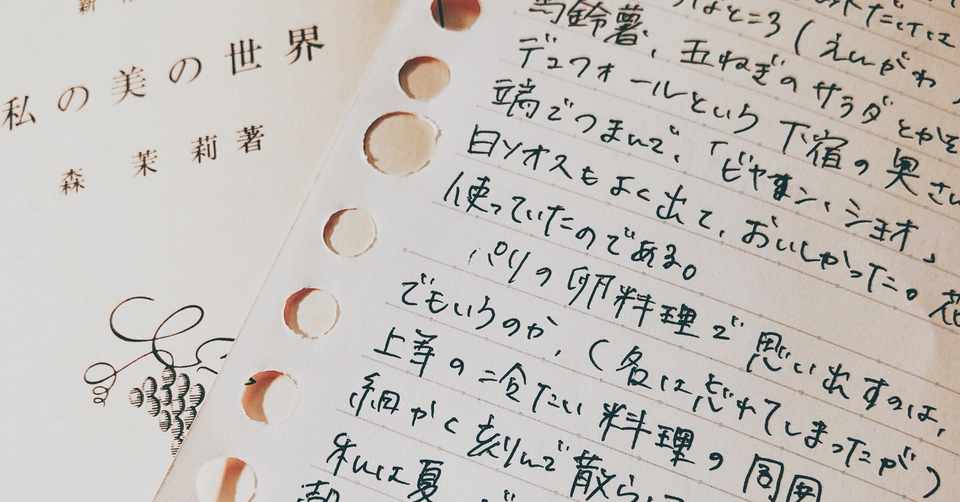 私の美の世界
森 茉莉著
ところ(えんがわ
馬鈴薯、玉ねぎのサラダとか
デュフォールという下宿の奥さん
端でつまんで、「ビヤン・ショオ」
白ソオスもよく出て、おいしかった。花
使っていたのである。
パリの卵料理で思い出すのは、
でもいうのか、(名は忘れてしまったが)
上等の冷たい料理の周囲
細かく刻んで散らし
私は夏